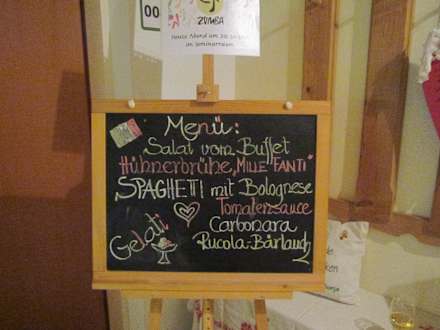 00
ZUMBA
Heute Abend um 20.30 Uhr
im Seminarraum
Menü:
Salat vom Buffet
Hühnerbrühe „MILLE FANTI"
SPAGHETTI mit Bolognese
Tomatensauce
Carbonara
Rucola-Bärlauch
Gelati